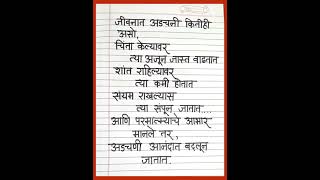 जीवनात अडचनी कितीही
असो,
चिंता केल्यावर
त्या अजून जास्त वाढतात
शांत राहिल्यावर
त्या कमी होतात
संयम राखल्यास
त्या संपून जातात....
आणि परमात्म्याचे आभार
मानले तर,
अडचणी आनंदात बदलून
जातात.